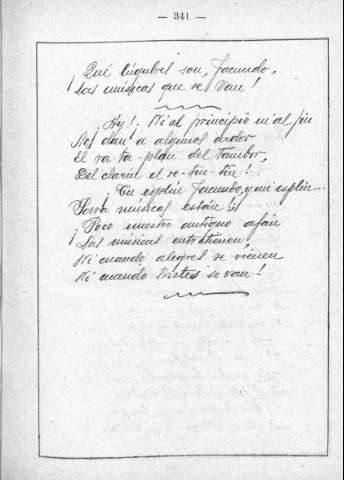 — 341 —
¡Qué lúgubres son, Facundo,
las músicas que se van!
¡Ay! Ni al principio ni al fin
Nos dan a algunos ardor
El ra-ta-plán del tambor,
Del clarín el re-tin-tín!
¡Tu esplín Facundo, y mi esplín....
Para músicas están!
¡Poco nuestro antiguo afán
Las músicas entretienen,
Ni cuando alegres se vienen
Ni cuando tristes se van!